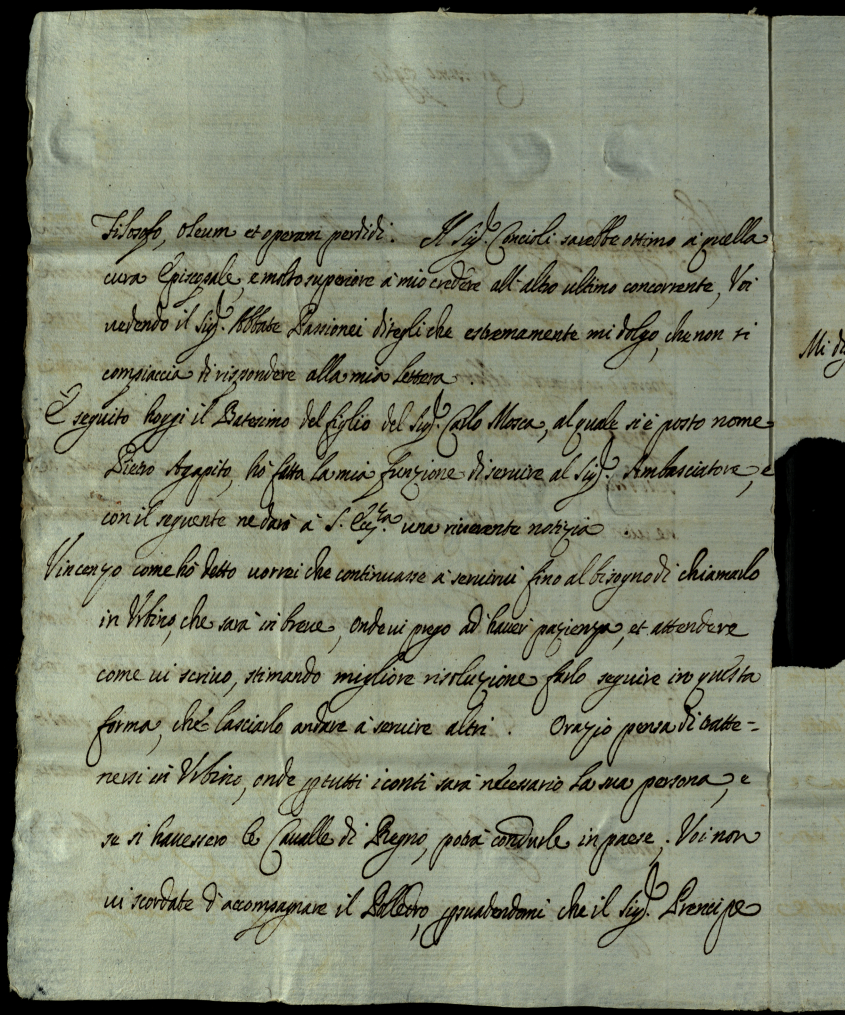 Filosofo, Oleum et operam perdidi. Il Sig.r Concioli sarebbe ottimo à quella
cura Episcopale, e molto superiore à mio credere all'altro ultimo concorrente, Voi
vedendo il Sig.r Abbate Passionei ditegli che estremamente mi dolgo, che non si
compiaccia di rispondere alla mia lettera.
È seguito hoggi il Batesimo del figlio del Sig.r Carlo Mosca, al quale si è posto nome
Piero Agapito, hò fatta la mia funzione di servire al Sig.r Ambasciatore, e
con il seguente ne darò à S. Ecc.za una riverente notizia
Vincenzo come hò detto vorrei che continuasse à servirvi fino al bisogno di chiamarlo
in Urbino, che sarà in breve, onde vi prego ad haver pazienza, et attendere
come vi scrivo, stimando migliore risoluzione farlo seguire in questa
forma, che lasciarlo andare à servire altri. Orazio pensa di tratte=
nersi in Urbino, onde p tutti i conti sarà necessario la sua persona, e
se si havessero le Cavalle di Regno, potrà condurle in paese. Voi non
vi scordate d'accompagnare il Polledro, psuadendomi che il Sig.r Prencipe
Mi di